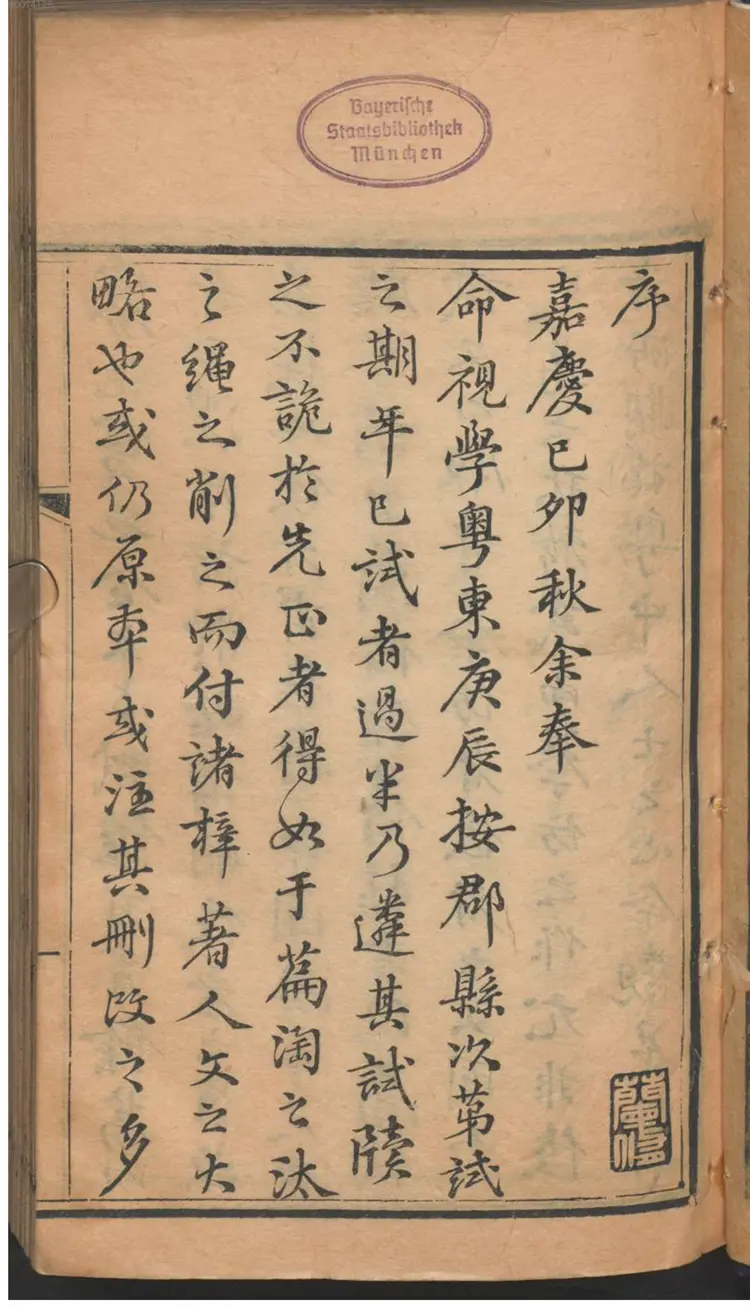 Bayerische
Staatsbibliothek
München
序
嘉慶己卯秋余奉
命視學粵東庚辰按郡縣次第試
之期年已試者過半乃遴其試牘
之不詭於先正者得如干篇淘之汰
之繩之削之而付諸梓著人文之大
略也或仍原本或注其刪改之多